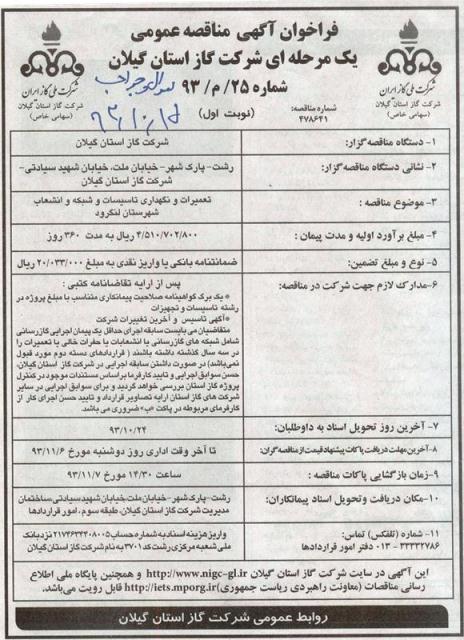 فراخوان آگهی مناقصه عمومی
یک مرحله ای شرکت گاز استان گیلان
شماره ۲۵/ م/ ۹۳
(نوبت اول)
شماره مناقصه:
۴۷۸۶۴۱
شرکت ملی گاز ایران
شرکت گاز استان گیلان
(سهامی خاص)
شرکت ملی گاز ایران
شرکت گاز استان گیلان
(سهامی خاص)
۱- دستگاه مناقصه گزار:
شرکت گاز استان گیلان
۲- نشانی دستگاه مناقصه گزار:
رشت- پارک شهر- خیابان ملت، خیابان شهید سیادتی-
شرکت گاز استان گیلان
۳- موضوع مناقصه :
تعمیرات و نگهداری تاسیسات و شبکه و انشعاب
شهرستان لنگرود
۴- مبلغ برآورد اولیه و مدت پیمان :
۴/۵۱۰/۷۰۲/۸۰۰ ریال به مدت ۳۶۰ روز
۵- نوع و مبلغ تضمین:
ضمانتنامه بانکی یا واریز نقدی به مبلغ ۲۰/۰۳۳/۰۰۰ ریال
۶-مدارک لازم جهت شرکت در مناقصه:
پس از ارایه تقاضانامه کتبی :
* یک برگ گواهینامه صلاحیت پیمانکاری متناسب با مبلغ پروژه در
رشته تاسیسات و تجهیزات
*آگهی تاسیس و آخرین تغییرات شرکت
متقاضیان می بایست سابقه اجرای حداقل یک پیمان اجرایی گازرسانی
شامل شبکه های گازرسانی یا انشعابات یا حفرات خالی یا تعمیرات را
در سه سال گذشته داشته باشند ( قراردادهای دسته دوم مورد قبول
نمی‌باشد) در صورت داشتن سابقه اجرایی در شرکت گاز استان گیلان،
حسن سوابق اجرایی و تایید کارفرما براساس مستندات موجود در کنترل
پروژه گاز استان بررسی خواهد گردید و برای سوابق اجرایی در سایر
شرکت های گاز استان ارایه تصاویر قرارداد و تایید حسن اجرای کار از
کارفرمای مربوطه در پاکت «ب» ضروری می باشد.
۷- آخرین روز تحویل اسناد به داوطلبان:
۹۳/۱۰/۲۴
۸-آخرین مهلت دریافت پاکات پیشنهاد قیمت از مناقصه گران:
تا آخر وقت اداری روز دوشنبه مورخ ۹۳/۱۱/۶
۹- زمان بازگشایی پاکات مناقصه :
ساعت ۱۴/۳۰ مورخ ۹۳/۱۱/۷
۱۰- مکان دریافت وتحویل اسناد پیمانکاران:
رشت- پارک شهر- خیابان ملت،خیابان شهید سیادتی،ساختمان
مدیریت شرکت گاز استان گیلان، طبقه سوم، امور قراردادها
۱۱- شماره (تلفکس) تماس:
۳۳۳۳۲۷۸۶ - ۰۱۳ دفتر امور قراردادها
واریز هزینه اسناد به شماره حساب ۲۱۷۴۶۳۴۴۰۸۰۰۵ نزد بانک
ملی شعبه مرکزی رشت کد ۳۷۰۱ به نام شرکت گاز استان گیلان
این آگهی در سایت شرکت گاز استان گیلان http://www.nigc-gl.ir و همچنین پایگاه ملی اطلاع
رسانی مناقصات (معاونت راهبردی ریاست جمهوری)http://iets.mporg.ir قابل رویت می‌باشد.
روابط عمومی شرکت گاز استان گیلان